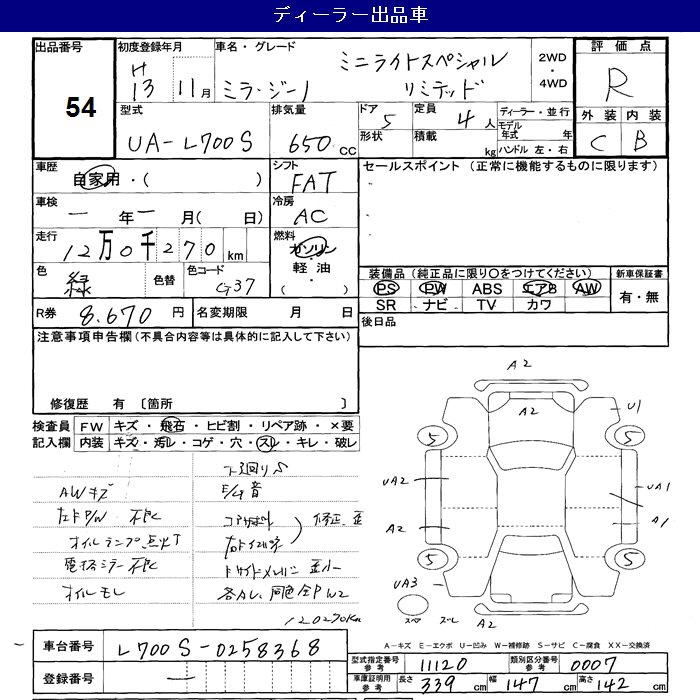 ディーラー出品車
出品番号
54
初度登録年月
H13 11月
車名・グレード
ミラ・ジーノ
ミニライトスペシャル
リミテッド
2WD
・
4WD
評価点
R
外装 内装
C B
型式
UA-L700S
排気量
650 CC
ドア 5
形状
定員 4 人
積載 kg
ディーラー・並行
モデル年式 年
ハンドル 左・右
車歴
自家用・( )
シフト
FAT
セールスポイント (正常に機能するものに限ります)
車検
一 年 一 月( 日)
冷房
AC
走行
12万0千270km
燃料
ガソリン
軽油・
( )
色
緑
色替
色コード
G37
装備品 (純正品に限り○をつけてください)
新車保証書
PS PW ABS エアB AW
SR ナビ TV カワ
有・無
R券 8.670 円
名変期限 月 日
後日品
注意事項申告欄(不具合内容等は具体的に記入して下さい)
修復歴 有 〔箇所 〕
検査員
記入欄
FW キズ・飛石・ヒビ割・リペア跡・×要
内装 キズ・汚れ・コゲ・穴・スレ・キレ・破レ
下廻りS
AWキズ
E/G音
オイルランプ点灯
電格ミラー不良
オイルモレ
修正、歪
120270Km
A2
A2
U1
5
5
UA2
UA1
A2
A1
5
5
UA3
A2
A-キズ E-エクボ U-凹み W-補修跡 S-サビ C-腐食 XX-交換済
車台番号
L700S-0258368
登録番号
一
型式指定番号
参考
11120
類別区分番号
参考
0007
車庫証明用
参考
長さ 339 cm 幅 147 cm 高さ 142 cm